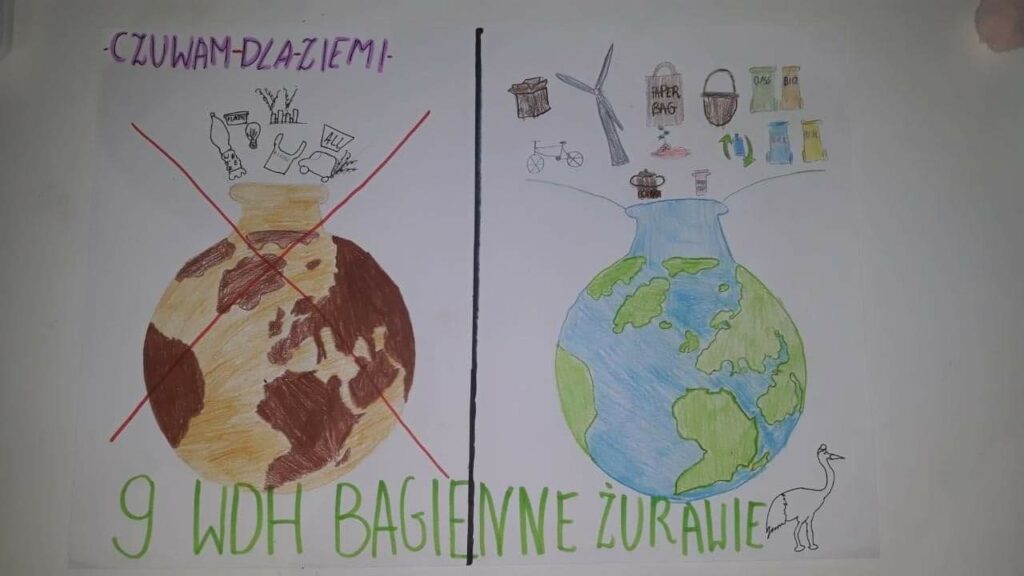 ·CZUWAM-DLA-ZIEMI·
ALU
PAPER
BAG
BIO
9 WDH BAGIENNE ŻURAWIE